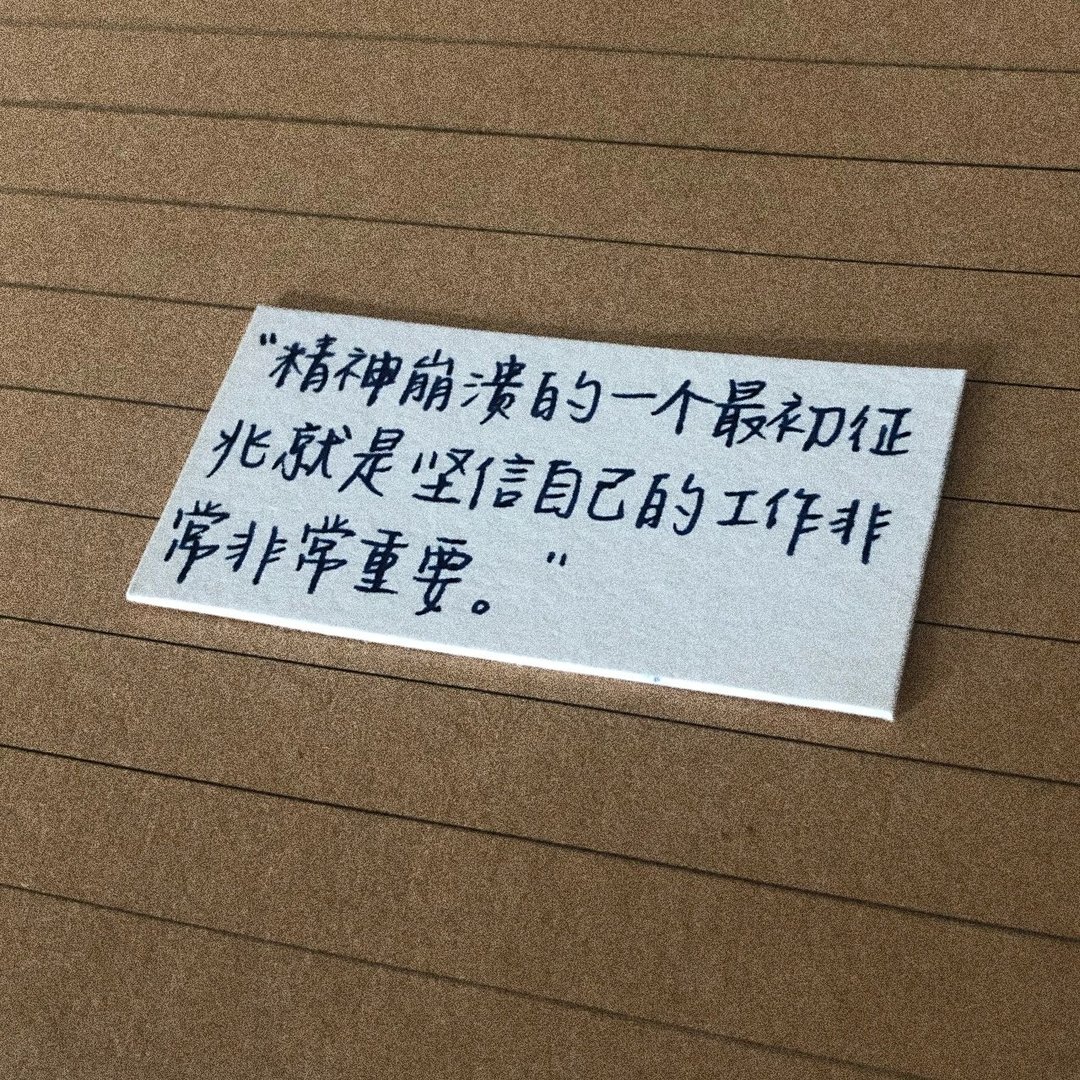 “精神崩溃的一个最初征
兆就是坚信自己的工作非
常非常重要。”